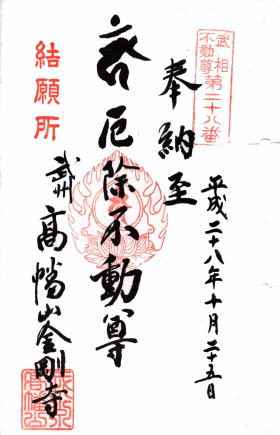 武相
不動尊
第二十八番
奉納
至
平成二十八年十月二十五日
厄除不動尊
結願所
武州
高幡山金剛寺